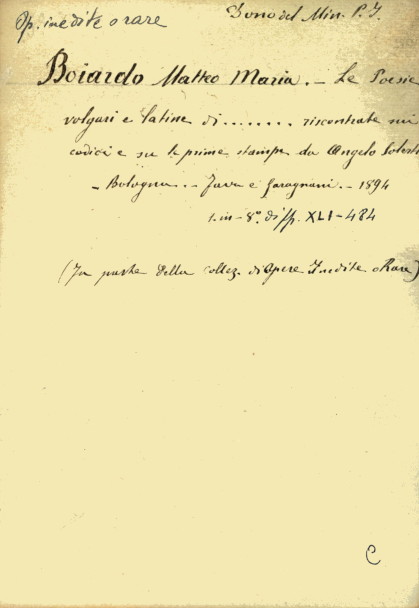 Op. inedite o rare
Dono del Min. P. I.
Boiardo Matteo Maria. - Le Poesie
volgari e latine di ........ riscontrate sui
codici e su le prime stampe da Angelo Solerti
- Bologna. - Fava e Garagnani. - 1894
1. in-8º. di pp. XLI-484
(Fa parte della collez. di Opere Inedite o Rare)
C